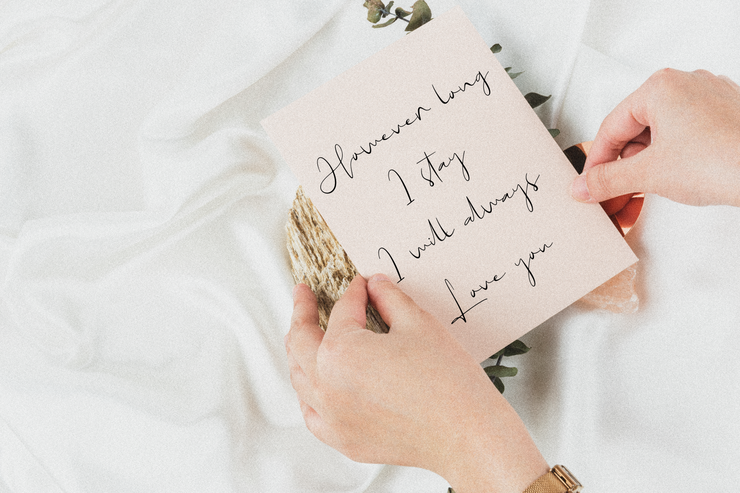 However long
I stay
I will always
Love you